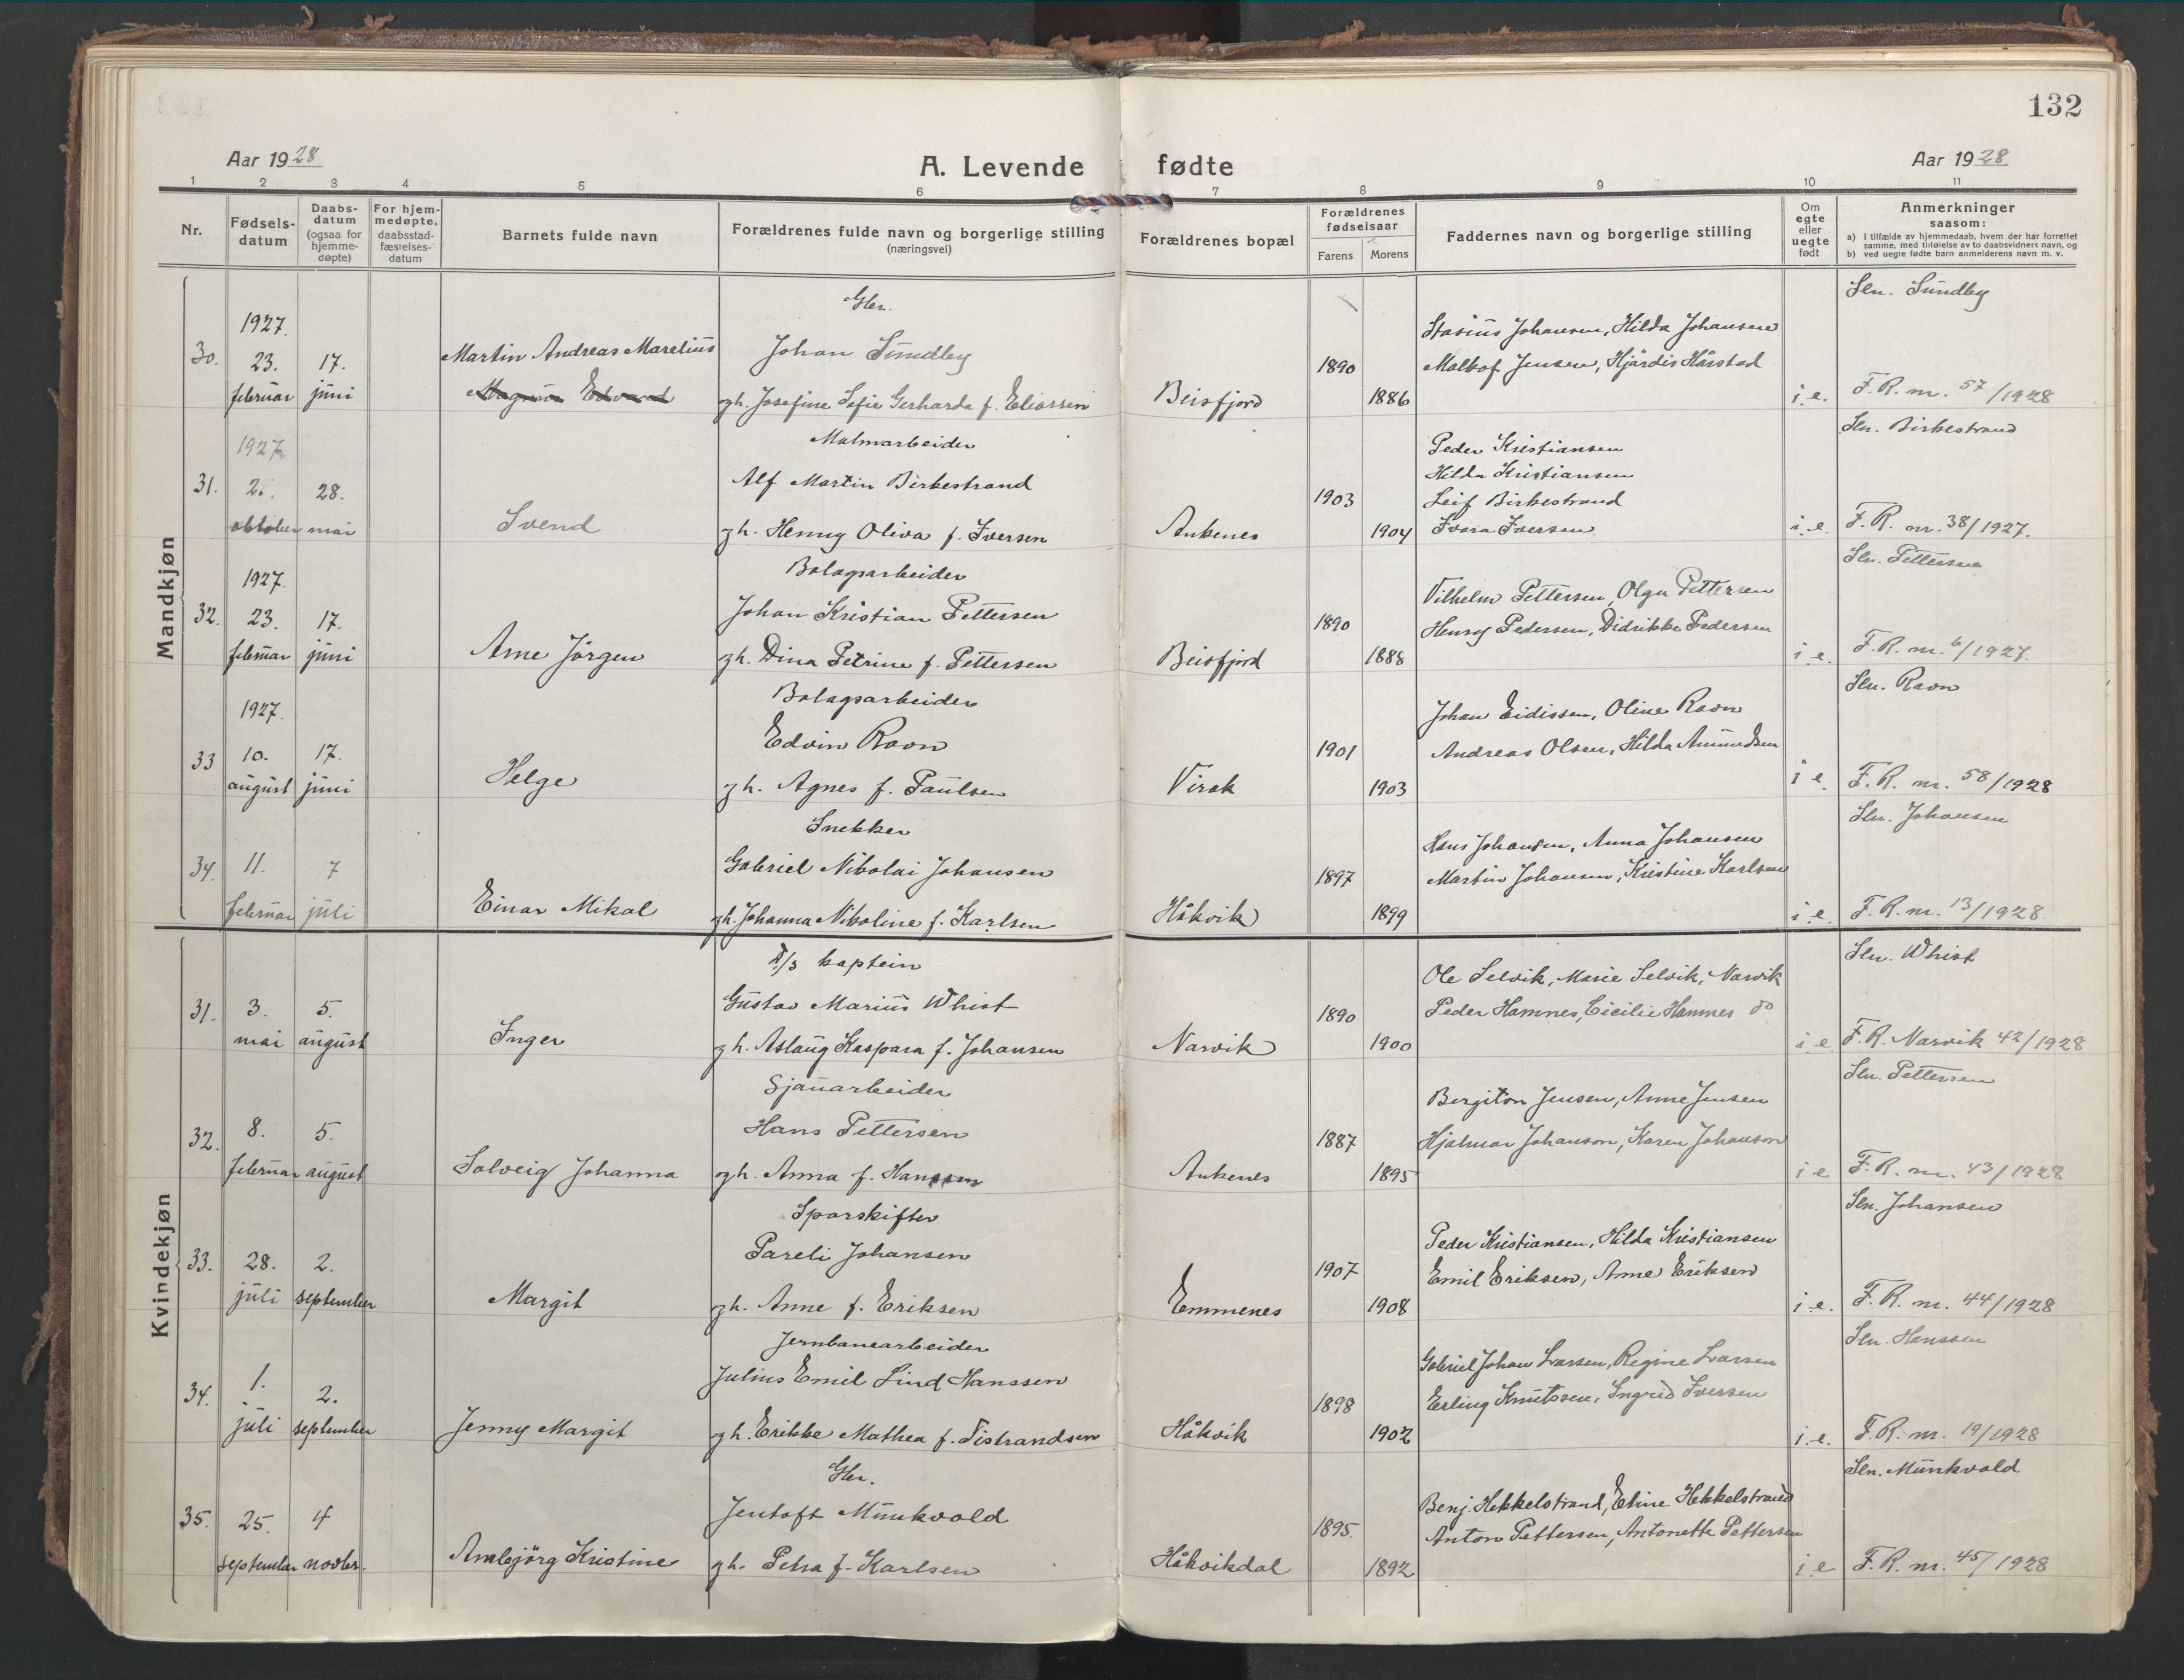 132
Aar 1928
A. Levende fødte
Aar 1928
1 2 3 4 5 6 7 8 9 10 11
Nr.
Fødsels-
datum
Daabs-
datum
(ogsaa for
hjemme-
døpte)
For hjem-
medøpte,
daabsstad-
fæstelses-
datum
Barnets fulde navn
Forældrenes fulde navn og borgerlige stilling
(næringsvei)
Forældrenes bopæl
Forældrenes
fødselsaar
Farens Morens
Faddernes navn og borgerlige stilling
Om
egte
eller
uegte
født
Anmerkninger
saasom:
a) i tilfælde av hjemmedaab, hvem der har forrettet
samme, med tilføielse av to daabsvidners navn, og
b) ved uegte fødte barn anmelderens navn m. v.
Mandkjøn
30.
1927.
23.
februar
17.
juni
Martin Andreas Marelius
Magnus Edvard
Gbr.
Johan Sundby
gh. Josefine Sofie Gerharda f. Eliassen
Beisfjord
1890
1886
Stasius Johansen, Hilda Johansen
Malhof Jensen, Hjárdis Hårstad
i.e.
Sln. Sundby
F.R. nr. 57/1928
31.
1927
oktober
28.
mai
Svend
Malmarbeider
Alf Martin Birkestrand
gh. Henny Oliva f. Iversen
Ankenes
1903
1904
Peder Kristiansen
Hilda Kristiansen
Leif Birkestrand
Ivara Iversen
i.e.
Sln. Birkestrand
F.R. nr. 38/1927.
32.
1927.
23.
februar
17.
juni
Arne Jörgen
Bolagsarbeider
Johan Kristian Pettersen
gh. Dina Petrine f. Pettersen
Beisfjord
1890
1888
Vilhelm Pettersen, Olga Pettersen
Henry Pedersen, Didrikke Pedersen
i.e.
Sln. Pettersen
F.R. nr. 6/1927.
33
1927.
10.
august
17.
juni
Helge
Bolagsarbeider
Edvin Ravn
gh. Agnes f. Paulsen
Virak
1901
1903
Johan Eidissen, Oline Ravn
Andreas Olsen, Hilda Amundsen
i.e.
Sln. Ravn
F.R. nr. 58/1928
34.
11.
februar
7
juli
Einar Mikal
Snekker
Gabriel Nikolai Johansen
gh. Johanna Nikoline f. Karlsen
Håkvik
1897
1899
Hans Johansen, Anna Johansen
Martin Johansen, Kristine Karlsen
i.e.
Sln. Johansen
F.R. nr. 13/1928.
Kvindekjøn
31.
3.
mai
5.
august
Inger
D/S kaptein
Gustav Marius Whist
gh. Aslaug Kaspara f. Johansen
Narvik
1890
1900
Ole Selvik, Marie Selvik, Narvik
Peder Hamnes, Cicilie Hamnes do
i.e
Sln. Whist
F.R. Narvik 42/1928
32.
8.
februar
5.
august
Solveig Johanna
Sjauarbeider
Hans Pettersen
gh. Anna f. Hanssen
Ankenes
1887
1895
Bergiton Jensen, Anne Jensen
Hjalmar Johanson, Karen Johanson
i.e
Sln. Pettersen
F.R. nr. 43/1928
33.
28.
juli
2.
september
Margit
Sporskifter
Pareli Johansen
gh. Anne f. Eriksen
Emmenes
1907
1908
Peder Kristiansen, Hilda Kristiansen
Emil Eriksen, Anne Eriksen
i.e.
Sln. Johansen
F.R. nr. 44/1928
34.
1.
juli
2.
september
Jenny Margit
Jernbanearbeider
Julius Emil Lind Hanssen
gh. Erikke Mathea f. Tistrandsen
Håkvik
1898
1902
Gabriel Johan Larsen, Regine Larsen
Erling Knutssen, Ingrid Iversen
i.e.
Sln. Hanssen
F.R. nr. 19/1928
35.
25.
september
4
novbr.
Annbjörg Kristine
Gbr.
Jentoft Munkvold
gh. Petra f. Karlsen
Håkvikdal
1895.
1892
Benj. Hekkelstrand, Eline Hekkelstrand
Anton Pettersen, Antonette Pettersen
i.e
Sln. Munkvold
F.R. nr. 45/1928